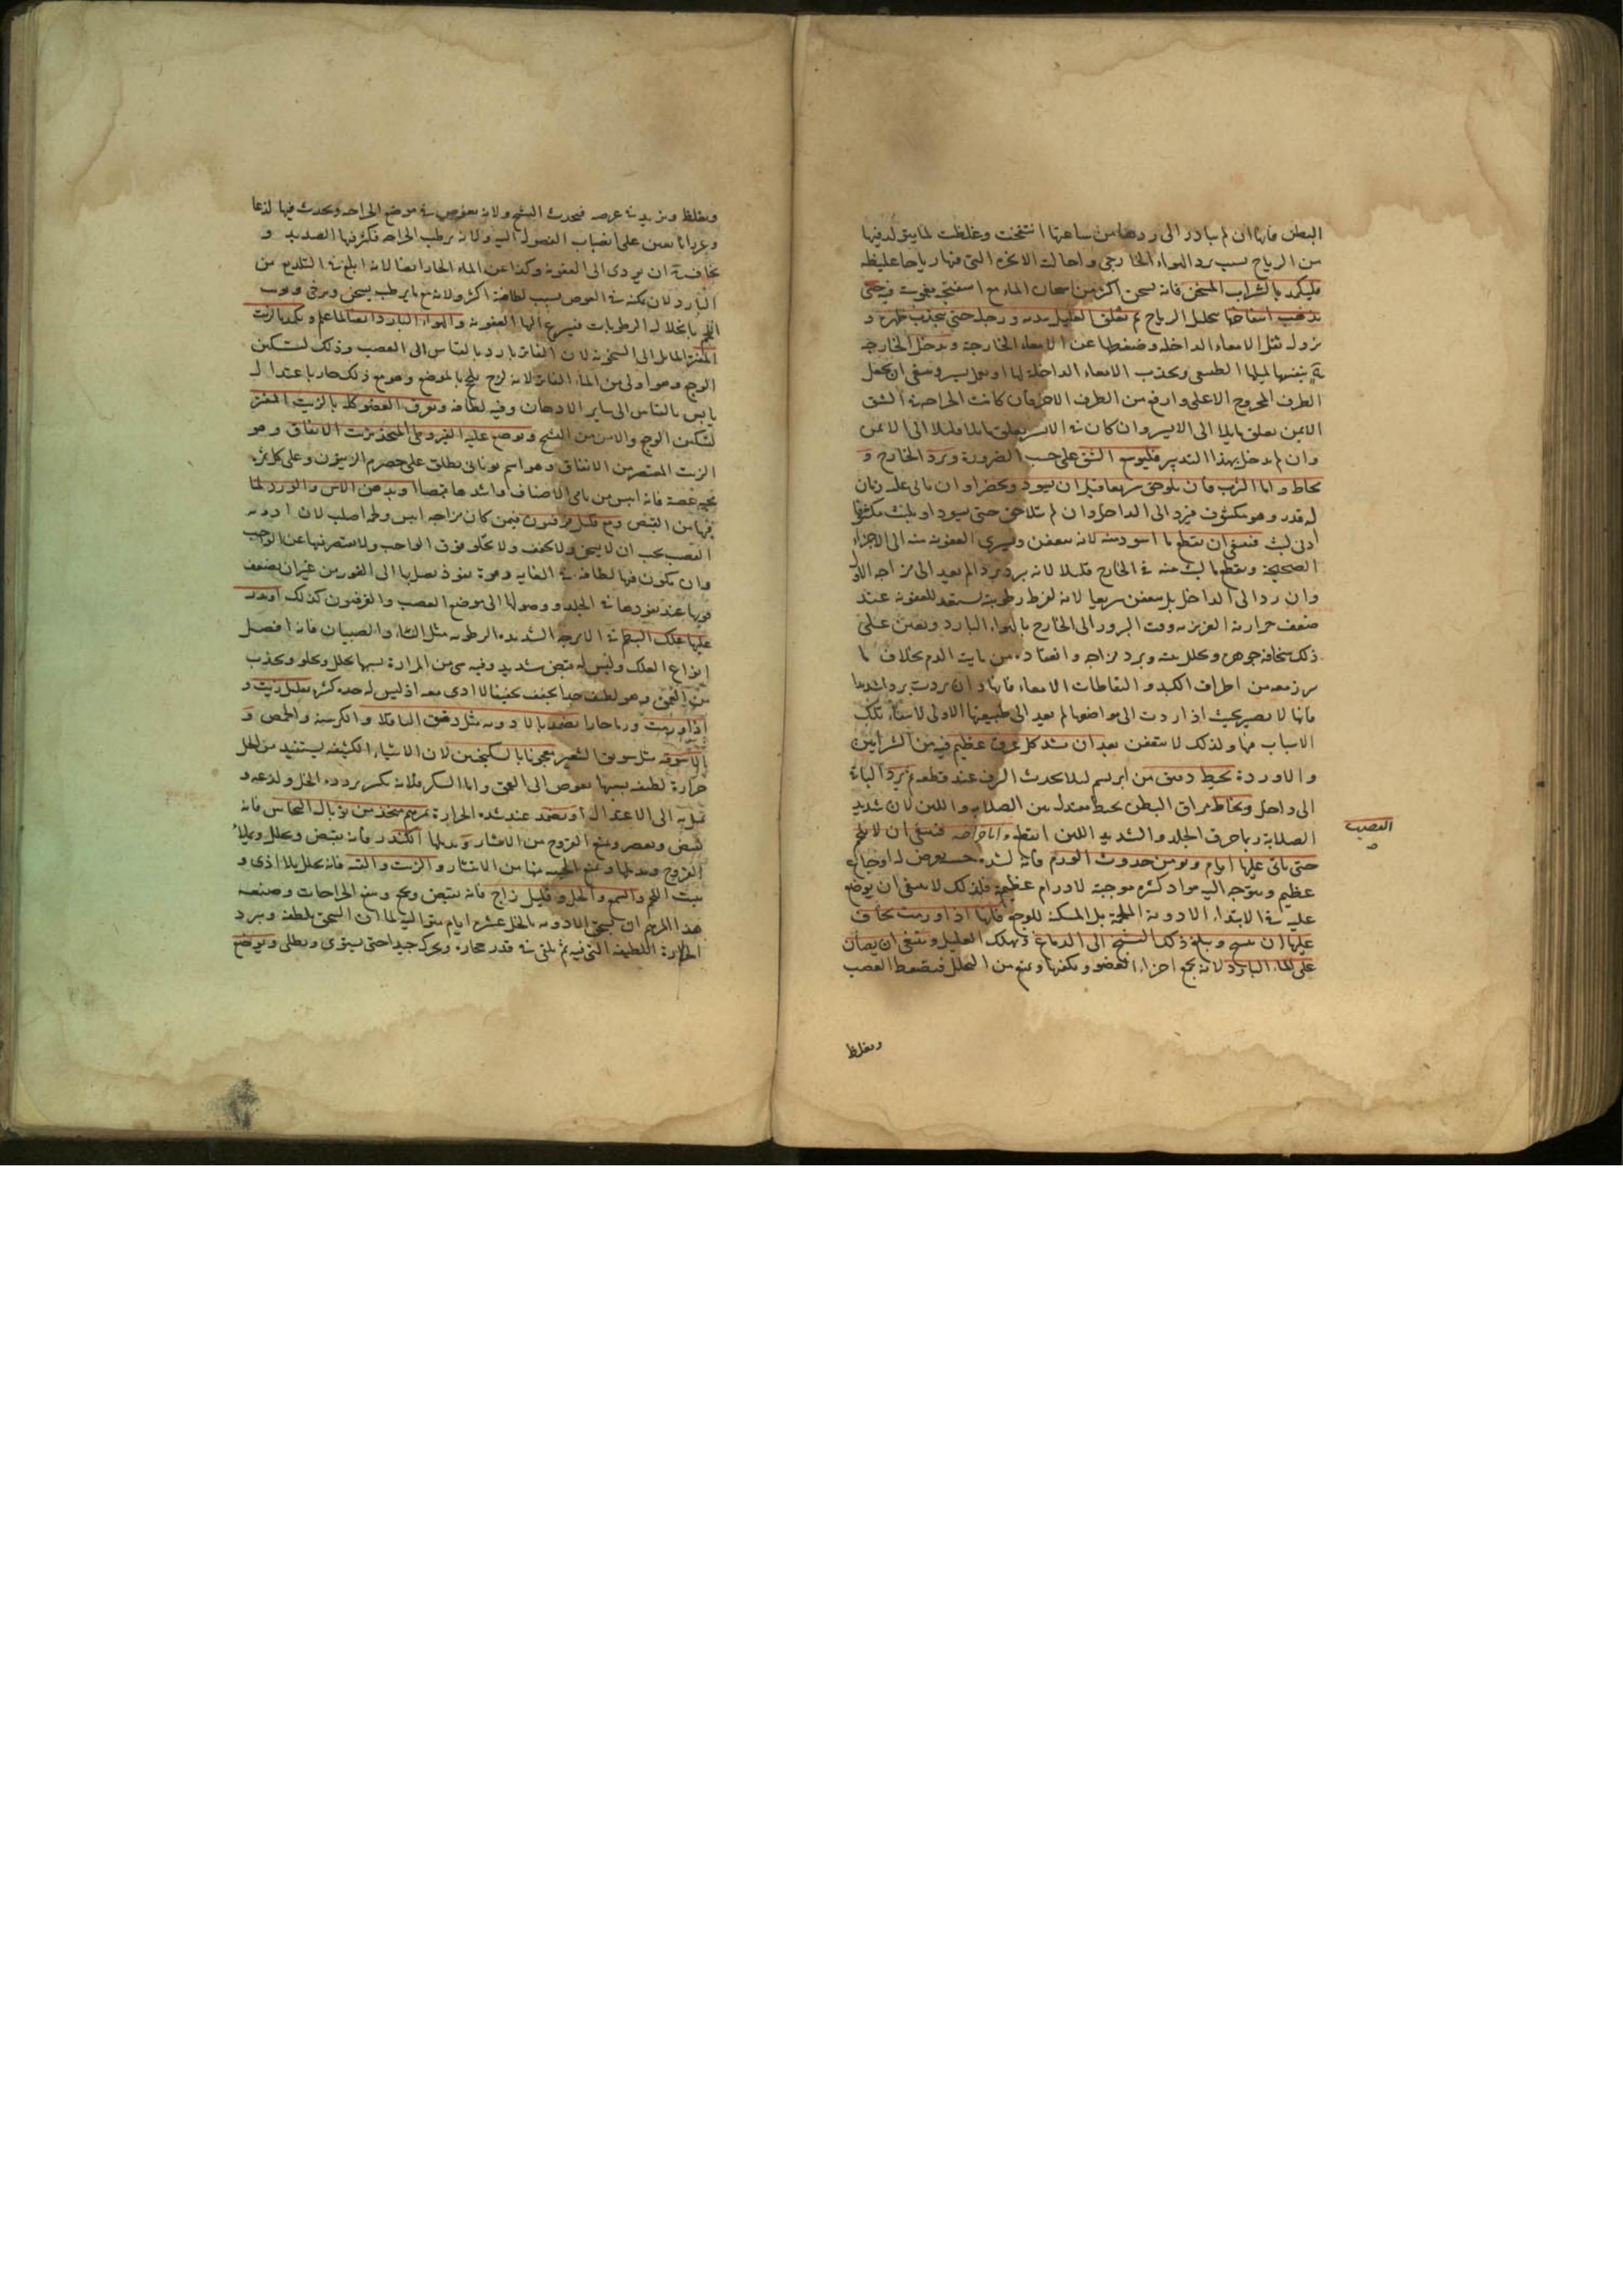 البطن فانها ان لم يبادر الى ردها من ساعتها انتفخت وغلظت لما يتولد فيها
من الرياح بسبب برد الهواء الخارجى واحالته الابخرة التى فيها رياحا غليظة
فليكمد بالشراب المسخن فانه يسخن اكثر من اسخان الماء مع اسفنجة يغوث فيه حتى
يذهب انتفاخها بتحليل الرياح ثم يعلق العليل بيديه ورجليه حتى ينجذب ظهره و
يزول ثقل الامعاء الداخلة وضغطها عن الامعاء الخارجة ويدخل الخارجة
بنفسها لميلها الطبيعى وبجذب الامعاء الداخلة لها او بعمل يسير وينبغى ان يجعل
الطرف المجروح الاعلى وارفع من الطرف الاخر فان كانت الجراحة فى الشق
الايمن يعلق مايلا الى الايسر وان كان فى الايسر يعلق مايلا قليلا الى الايمن
وان لم يدخل بهذا التدبير فليوسع الشق على حسب الضرورة ويرد الخارج و
يخاط واما الثرب فان يلوحق سريعا قبل ان يسود ويخضر او ان ياتى عليه زمان
له قدر وهو مكشوف فيرد الى الداخل وان لم يتلاحق حتى يسود او يلبث مكشوفا
ادنى لبث فينبغى ان يقطع ما اسود منه لانه يتعفن ويسرى العفونة منه الى الاجزاء
الصحيحة ويقطع ما لبث منه فى الخارج قليلا لانه برد بردا لم يعد الى مزاجه الاول
وان رد الى الداخل بل يتعفن سريعا لانه لفرط رطوبته يستعد للعفونة عند
ضعف حرارته الغريزية وقت البروز الى الخارج بالهواء البارد ويعين على
ذلك سخافة جوهره وتخلل بنيته وبرد مزاجه وانعقاده من مايية الدم بخلاف ما
برز معه من اطراف الكبد والتقاطات الامعاء فانها وان بردت بردا شديدا
فانها لا يصير بحيث اذا ردت الى مواضعها لم تعد الى طبيعتها الاولى لانتفاء تلك
الاسباب منها ولذلك لا يتعفن بعد ان يشد كل عرق عظيم فيه من الشرايين
والاوردة بخيط دقيق من ابريسم ليلا يحدث النزف عند قطعه ثم يرد الباقى
الى داخل ويخاط مراق البطن بخيط معتدل بين الصلابة واللين لان شديد
الصلابة ربما خرق الجلد والشديد اللين انقطع واما جراحة فينبغى ان لا يلحم
العصب
حتى ياتى عليها ايام ويومن حدوث الورم فانه لشدة حسه يعرض له اوجاع
عظيم ويتوجه اليه مواد كثيرة موجبة لاورام عظيمة فلذلك لا ينبغى ان يوضع
عليه فى الابتداء الادوية الملحمة بل المسكنة للوجع فانها اذا ورمت يخاف
عليها ان تتشنج ويبلغ ذلك التشنج الى الدماغ فيهلك العليل وينبغى ان يصان
على الماء البارد لانه يجمع اجزاء العضو ويكثفها ويمنع من التحلل فينضغط العصب
ويغلظ
ويغلظ ويزيد فى عرضه فيحدث التشنج ولانه يغوص فى موضع الجراحة ويحدث فيها لذعا
وحرارة يعين على انصباب الفضول اليه ولانه يرطب الجراحة فيكثر فيها الصديد و
يخاف منه ان يودى الى العفونة وكذا عن الماء الحار ايضا لانه ابلغ فى التلذيع من
البارد لان يمكنه فى الغوص بسبب لطافته اكثر ولانه مع ما يرطب يسخن ويرخى ويوسخ
اللحم بانحلال الرطوبات فيسرع اليها العفونة والهواء البارد ايضا لما علم ويكمد بالزيت
المفتر المايل الى السخونة لان الفاتر بارد بالقياس الى العصب وذلك لتسكين
الوجع وهو اولى من الماء الفاتر لانه لزج يلحج بالموضع وهو مع ذلك حار باعتدال
يابس بالقياس الى ساير الادهان وفيه لطافة ويعرق العضو كله بالزيت المفتر
لتسكين الوجع والامن من التشنج ويوضع عليه القيروطى المتخذ بزيت الانفاق وهو
الزيت المعتصر من الانفاق وهو اسم يونانى يطلق على حصرم الزيتون وعلى كل ثمرة
فجة عفصة فانه ايبس من باقى الاصناف واشدها قبضا او بدهن الاس والورد لما
فيها من القبض ومع قليل فرفيون فيمن كان مزاجه ايبس ولحمه اصلب لان ادوية
العصب يجب ان لا يسخن ولا يجفف ولا يجلو فوق الواجب ولا يقصر فيها عن الواجب
وان يكون فيها لطافة فى الغاية وقوة نفوذ يصل بها الى الغور من غير ان يضعف
قوتها عند نفوذها فى الجلد ووصولها الى موضع العصب والفرفيون كذلك او يوضع
عليها علك البطم فى الامزجة الشديدة الرطوبة مثل النساء والصبيان فانه افضل
انواع العلك وليس له قبض شديد وفيه شى من المرارة بسببها يحلل ويجلو ويجذب
من العمق وهو لطيف جدا يجفف تجفيفا لا اذى معه اذ ليس له حدة كثيرة بقليل زيت و
اذا ورمت ورما حارا يضمد بالادوية مثل دقيق الباقلا والكرسنة والحمص و
الاسوقة مثل سويق الشعير معجونا بالسكنجبين لان الاشياء الكثيفة يستفيد من الخل
حرارة لطيفة بسببها يغوص الى العمق واما السكر فلانه يكسر برودة الخل ولذعه و
يميل به الى الاعتدال او يضمد عند شدة الحرارة بمرهم متخذ من توبال النحاس فانه
يقبض ويعصر ويمنع القروح من الانتشار ويدملها والكندر فانه يقبض ويحلل ويملأ
القروح ويدملها ويمنع الخبيثة منها من الانتشار والزيت والقنه فانه يحلل بلا اذى و
ينبت اللحم والشمع والخل وقليل زاج فانه يقبض ويجفف ويمنع الجراحات وصنعة
هذا المرهم ان يسحق الادوية بالخل عشرة ايام متوالية لما ان السحق يلطفه ويبرد
الحرارة اللطيفة التى فيه ثم يلقى فى قدر حجارة ويحرك جيدا حتى يستوى ويطلى ويوضع